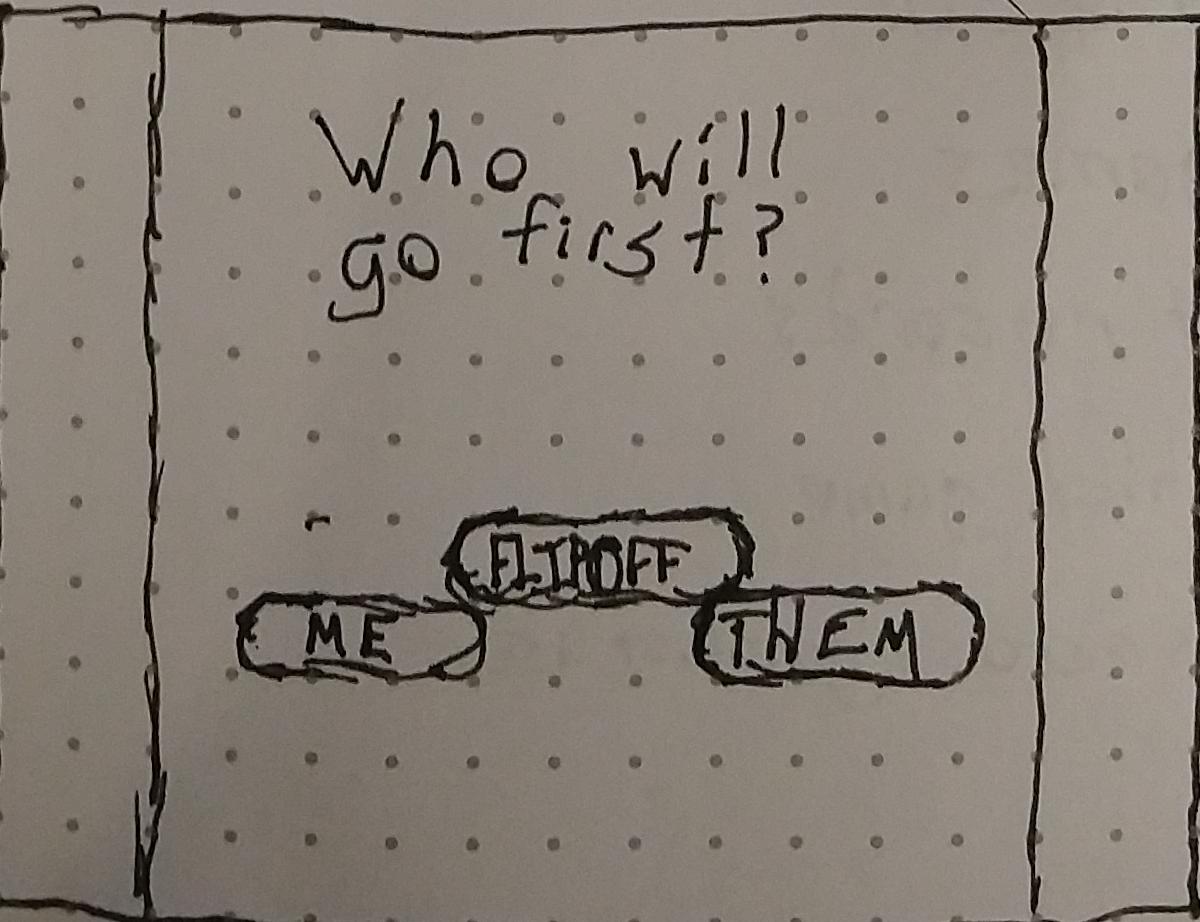 Who will
go first?
FLIPOFF
ME THEM